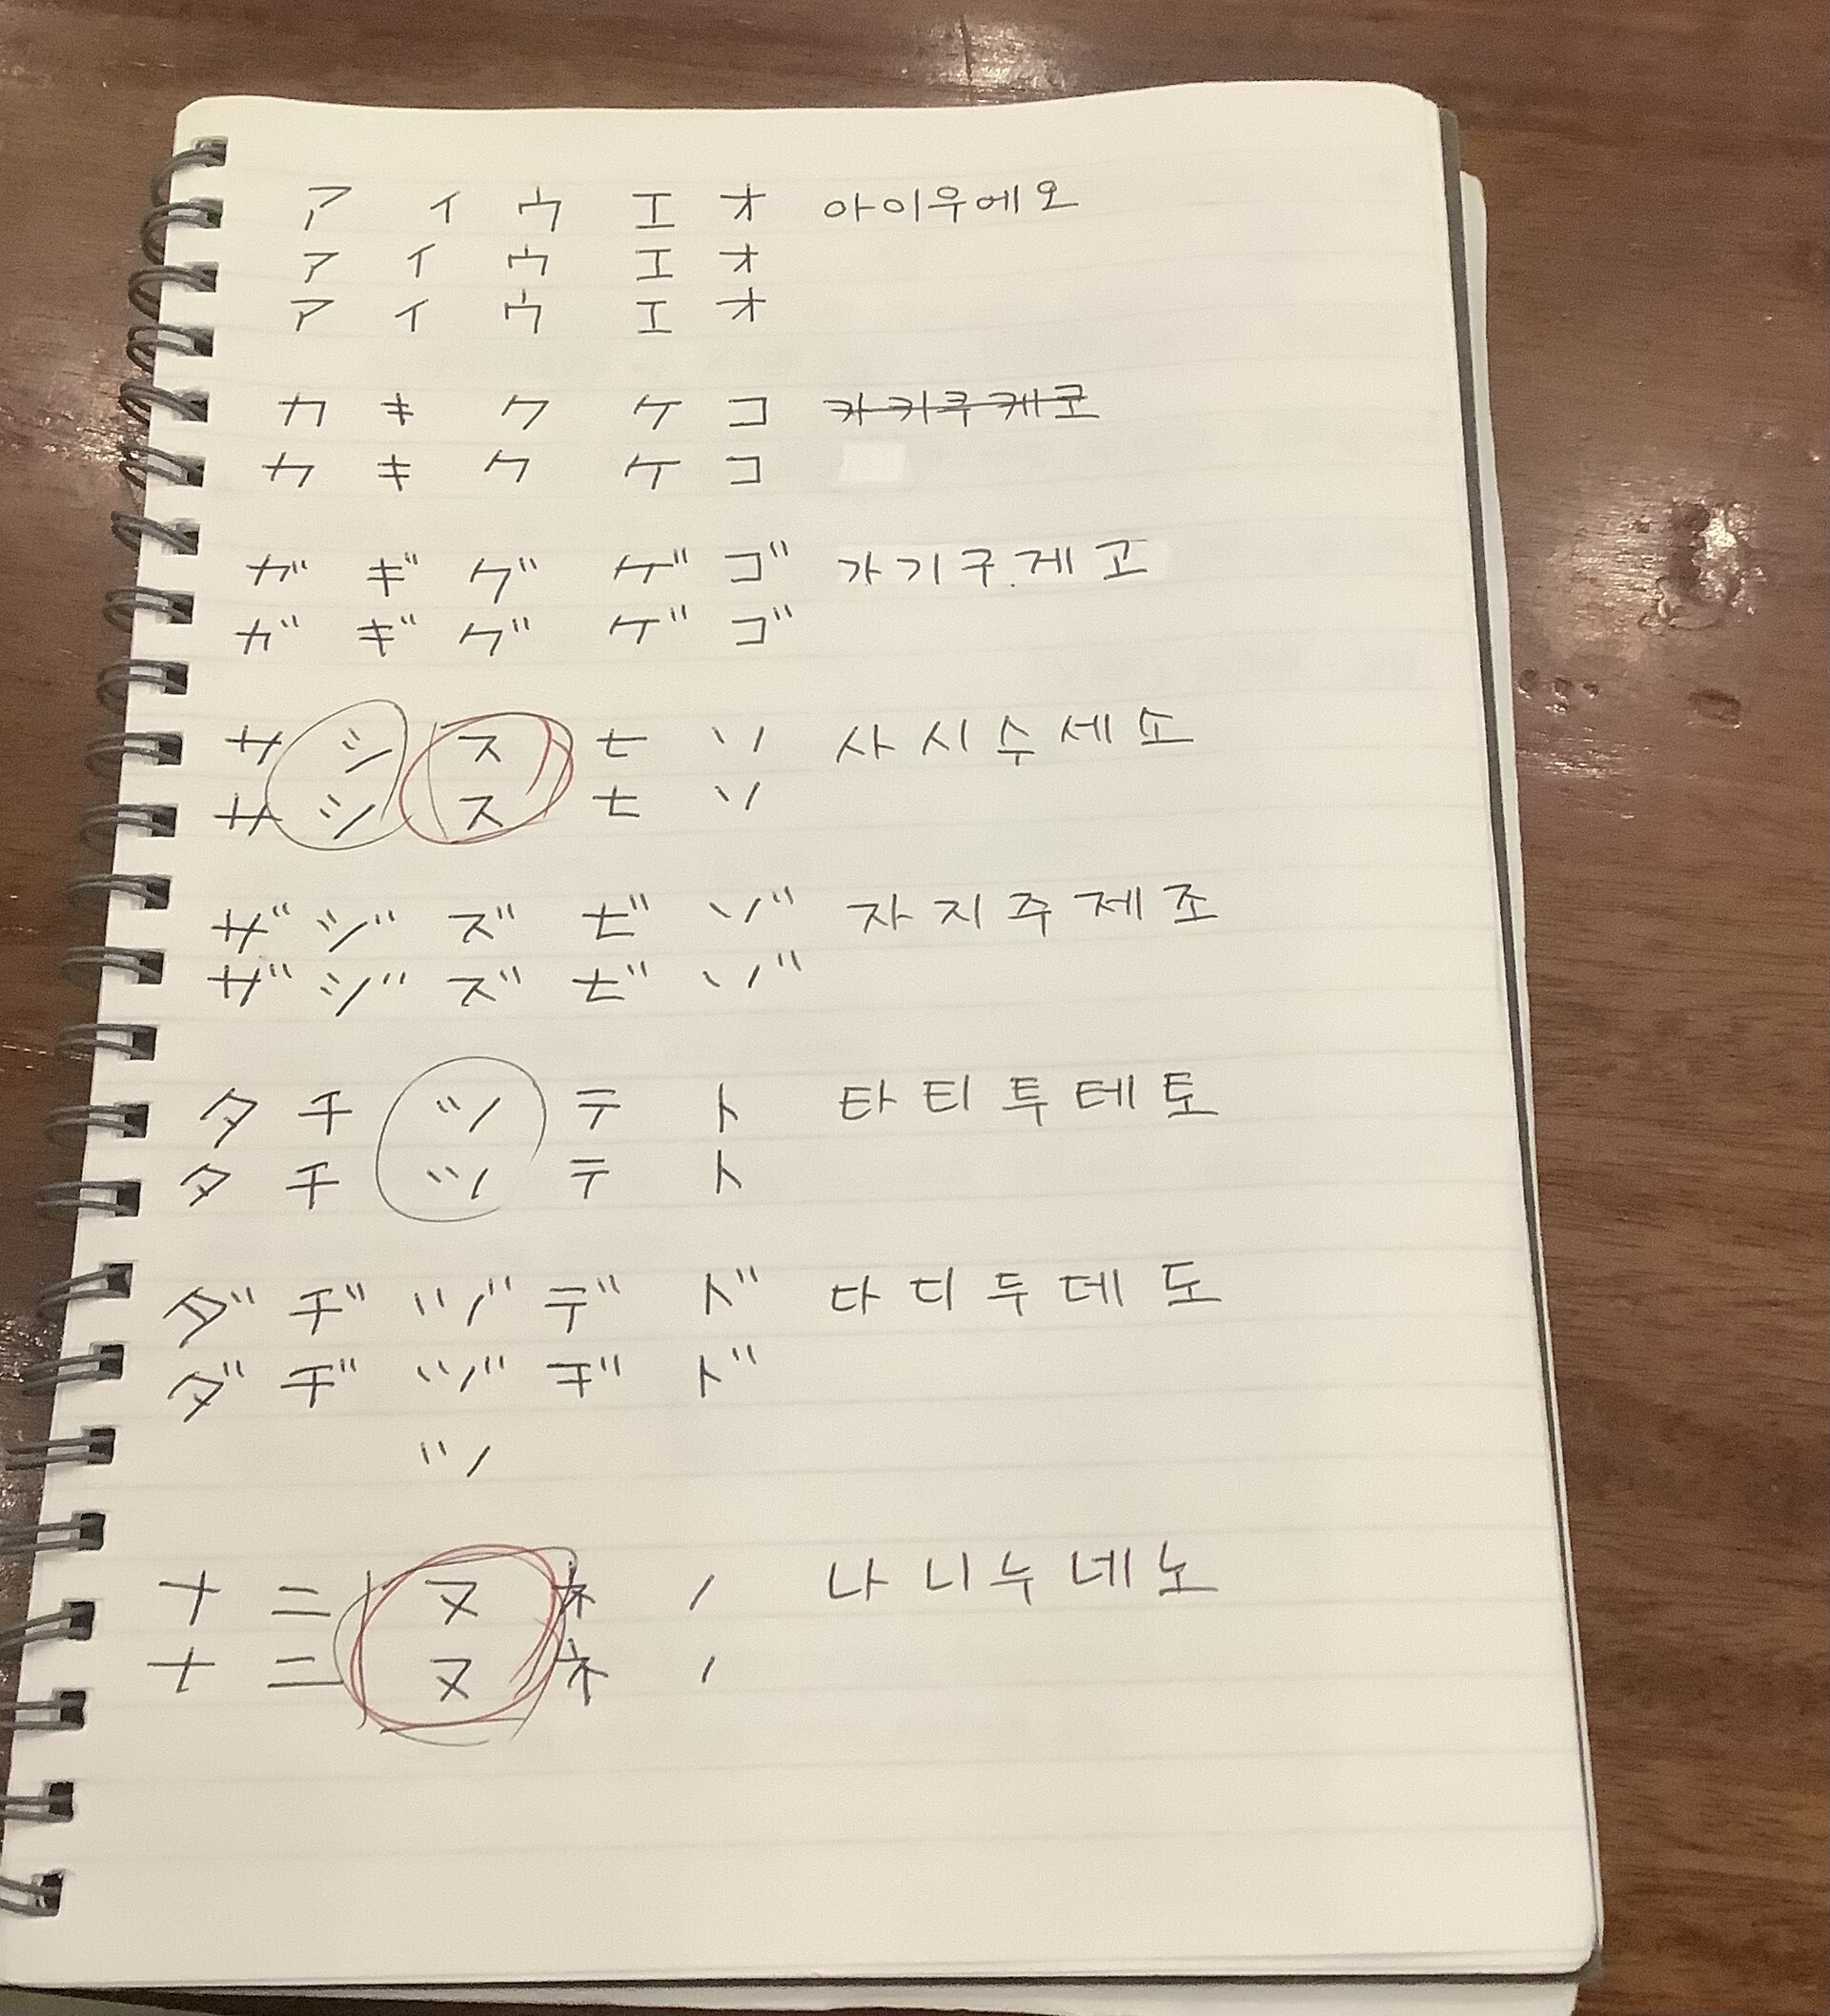 ア イ ウ エ オ 아이우에오
ア イ ウ エ オ
ア イ ウ エ オ
カ キ ク ケ コ 카키쿠케코
カ キ ク ケ コ
ガ ギ グ ゲ ゴ 가기구게고
ガ ギ グ ゲ ゴ
サ シ ス セ ソ 사시수세소
サ シ ス セ ソ
ザ ジ ズ ゼ ゾ 자지주제조
ザ ジ ズ ゼ ゾ
タ チ ツ テ ト 타티투테토
タ チ ツ テ ト
ダ ヂ ヅ デ ド 다디두데도
ダ ヂ ヅ デ ド
ツ
ナ ニ ヌ ネ ノ 나니누네노
ナ ニ ヌ ネ ノ